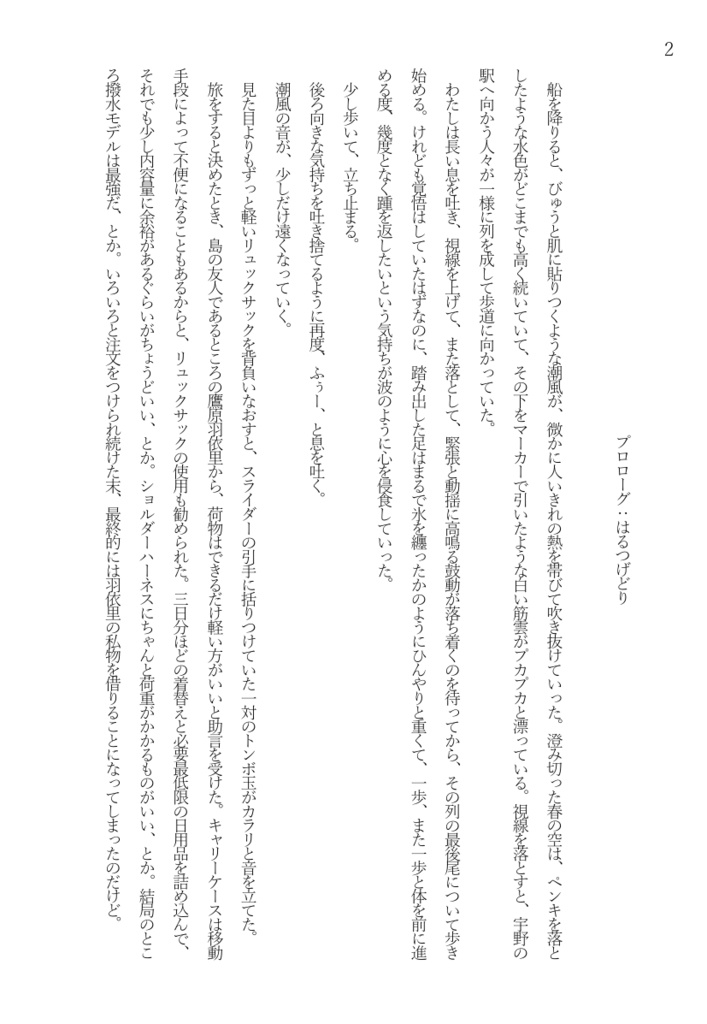 2
プロローグ：はるつげどり
船を降りると、びゅうと肌に貼りつくような潮風が、微かに人いきれの熱を帯びて吹き抜けていった。澄み切った春の空は、ペンキを落と
したような水色がどこまでも高く続いていて、その下をマーカーで引いたような白い筋雲がプカプカと漂っている。視線を落とすと、宇野の
駅へ向かう人々が一様に列を成して歩道に向かっていた。
わたしは長い息を吐き、視線を上げて、また落として、緊張と動揺に高鳴る鼓動が落ち着くのを待ってから、その列の最後尾について歩き
始める。けれども覚悟はしていたはずなのに、踏み出した足はまるで氷を纏ったかのようにひんやりと重くて、一歩、また一歩と体を前に進
める度、幾度となく踵を返したいという気持ちが波のように心を侵食していった。
少し歩いて、立ち止まる。
後ろ向きな気持ちを吐き捨てるように再度、ふぅー、と息を吐く。
潮風の音が、少しだけ遠くなっていく。
見た目よりもずっと軽いリュックサックを背負いなおすと、スライダーの引手に括りつけていた一対のトンボ玉がカラリと音を立てた。
旅をすると決めたとき、島の友人であるところの鷹原羽依里から、荷物はできるだけ軽い方がいいと助言を受けた。キャリーケースは移動
手段によって不便になることもあるからと、リュックサックの使用も勧められた。三日分ほどの着替えと必要最低限の日用品を詰め込んで、
それでも少し内容量に余裕があるぐらいがちょうどいい、とか。ショルダーハーネスにちゃんと荷重がかかるものがいい、とか。結局のとこ
ろ撥水モデルは最強だ、とか。いろいろと注文をつけられ続けた末、最終的には羽依里の私物を借りることになってしまったのだけど。